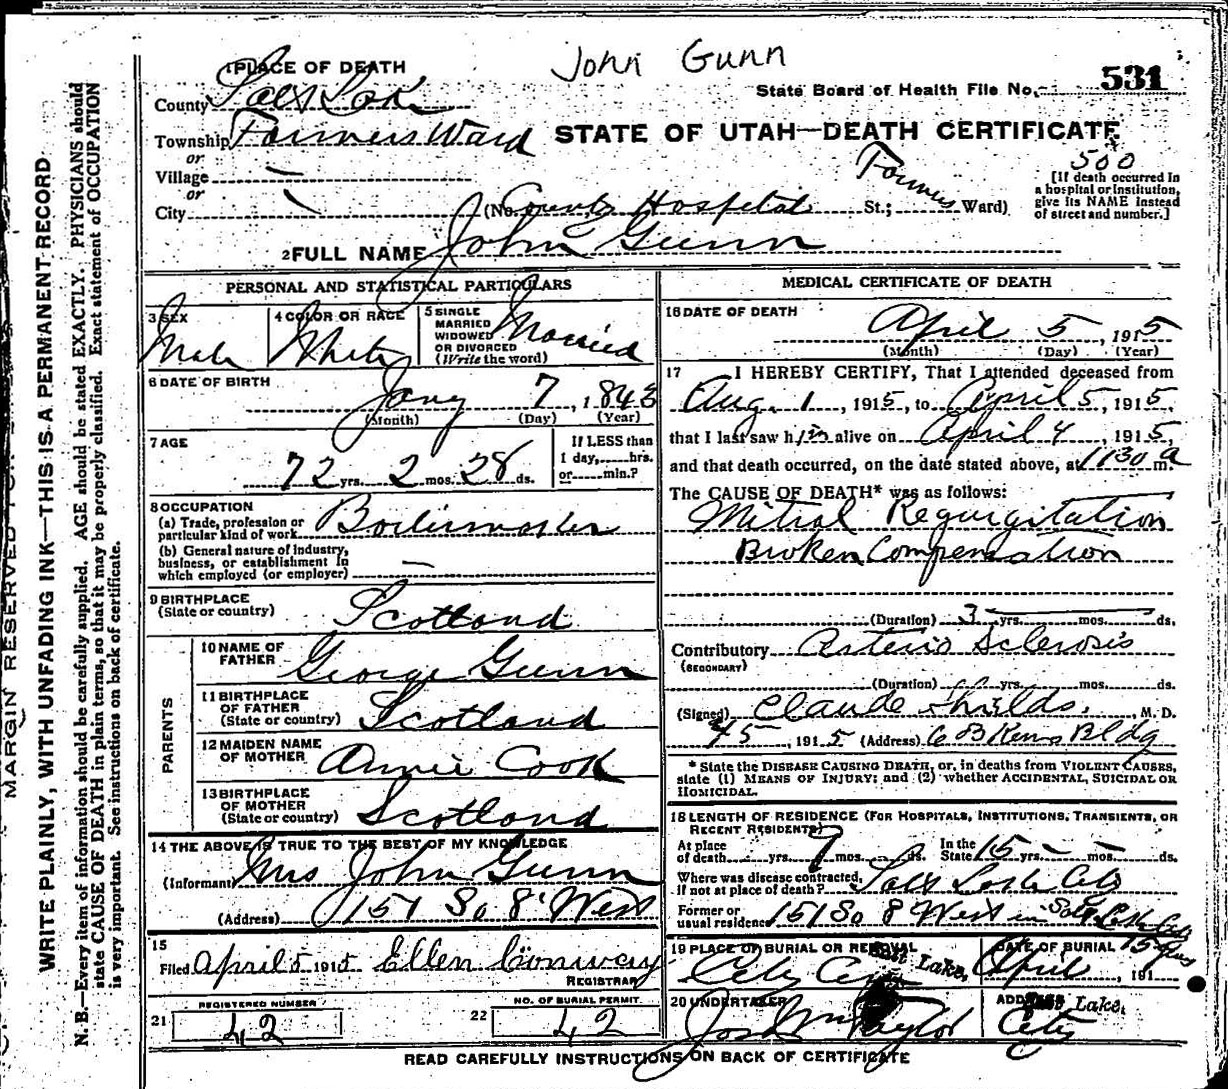 John Gunn
1 PLACE OF DEATH
State Board of Health File No. 531
County Salt Lake
Township Farmers Ward
STATE OF UTAH—DEATH CERTIFICATE
or
Village
or
City
(No. County Hospital St.; Farmers Ward)
500
[If death occurred in
a hospital or institution,
give its NAME instead
of street and number.]
2 FULL NAME John Gunn
PERSONAL AND STATISTICAL PARTICULARS
3 SEX
Male
4 COLOR OR RACE
White
5 SINGLE
MARRIED
WIDOWED
OR DIVORCED
(Write the word)
Married
6 DATE OF BIRTH
Jany 7, 1843
(Month) (Day) (Year)
7 AGE
72 yrs. 2 mos. 28 ds.
If LESS than
1 day,......hrs.
or......min.?
8 OCCUPATION
(a) Trade, profession or
particular kind of work
Boilermaker
(b) General nature of industry,
business, or establishment in
which employed (or employer)
9 BIRTHPLACE
(State or country)
Scotland
PARENTS
10 NAME OF
FATHER
George Gunn
11 BIRTHPLACE
OF FATHER
(State or country)
Scotland
12 MAIDEN NAME
OF MOTHER
Annie Cook
13 BIRTHPLACE
OF MOTHER
(State or country)
Scotland
14 THE ABOVE IS TRUE TO THE BEST OF MY KNOWLEDGE
(Informant) Mrs John Gunn
(Address) 151 So 8' West
15
Filed April 5 1915 Ellen Conway
REGISTRAR
REGISTERED NUMBER
21 42
NO. OF BURIAL PERMIT
22 42
MEDICAL CERTIFICATE OF DEATH
16 DATE OF DEATH
April 5, 1915
(Month) (Day) (Year)
17 I HEREBY CERTIFY, That I attended deceased from
Aug. 1, 1915, to April 5, 1915,
that I last saw him alive on April 4, 1915,
and that death occurred, on the date stated above, at 1130 a m.
The CAUSE OF DEATH* was as follows:
Mitral Regurgitation
Broken Compensation
(Duration) 3 yrs. mos. ds.
Contributory Arterio Sclerosis
(SECONDARY)
(Duration) yrs. mos. ds.
(Signed) Claude Shields, M. D.
4/5, 1915 (Address) Bldg
* State the DISEASE CAUSING DEATH, or, in deaths from VIOLENT CAUSES,
state (1) MEANS OF INJURY; and (2) whether ACCIDENTAL, SUICIDAL OR
HOMICIDAL.
18 LENGTH OF RESIDENCE (FOR HOSPITALS, INSTITUTIONS, TRANSIENTS, OR
RECENT RESIDENTS)
At place
of death yrs. 9 mos. ds.
In the
State 15 yrs. mos. ds.
Where was disease contracted,
if not at place of death? Salt Lake City
Former or
usual residence 151 So 8 West in Salt Lake City
15 yrs
19 PLACE OF BURIAL OR REMOVAL
City Cem Salt Lake,
DATE OF BURIAL
April, 191
20 UNDERTAKER
Jos Wm Taylor
ADDRESS
Salt Lake,
City
READ CAREFULLY INSTRUCTIONS ON BACK OF CERTIFICATE
MARGIN RESERVED FOR
WRITE PLAINLY, WITH UNFADING INK—THIS IS A PERMANENT RECORD
N. B.—Every item of information should be carefully supplied. AGE should be stated EXACTLY. PHYSICIANS should
state CAUSE OF DEATH in plain terms, so that it may be properly classified. Exact statement of OCCUPATION
is very important. See instructions on back of certificate.